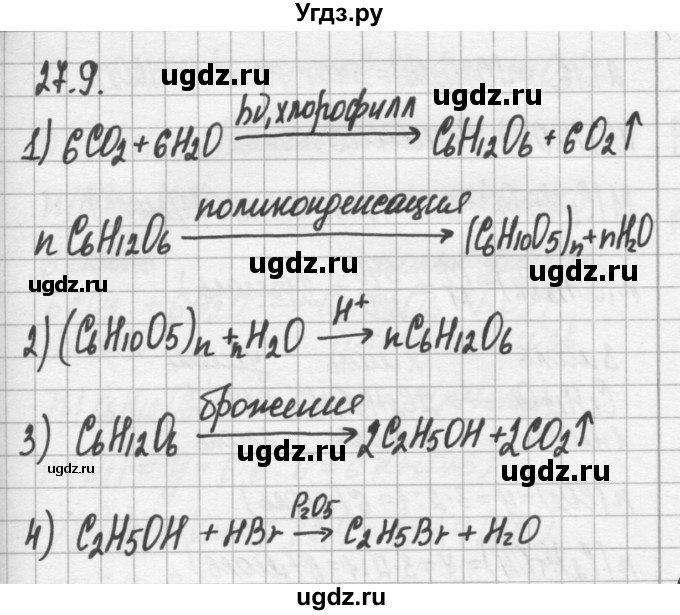 Угдз.рф
27.9.
ugdz.ru ugdz.ru
1) 6CO2 + 6H2O hν, хлорофилл → C6H12O6 + 6O2↑
ugdz.ru
n C6H12O6 поликонденсация → (C6H10O5)n + nH2O
ugdz.ru ugdz.ru
2) (C6H10O5)n + nH2O H+ → nC6H12O6
3) C6H12O6 брожения → 2C2H5OH + 2CO2↑
ugdz.ru ugdz.ru ugdz.ru
4) C2H5OH + HBr P2O5 → C2H5Br + H2O
ugdz.ru ugdz.ru
Угдз.рф